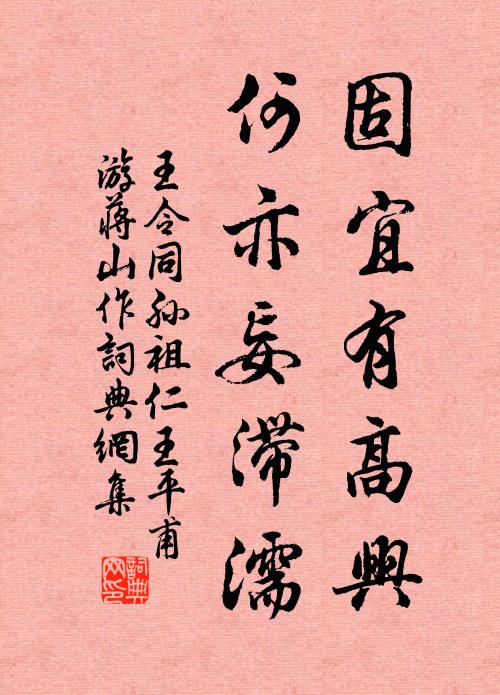 固宜有高興
何亦妄滯濡
王令同孙祖仁王平甫
游蔣山作詞典網集
詞典網印